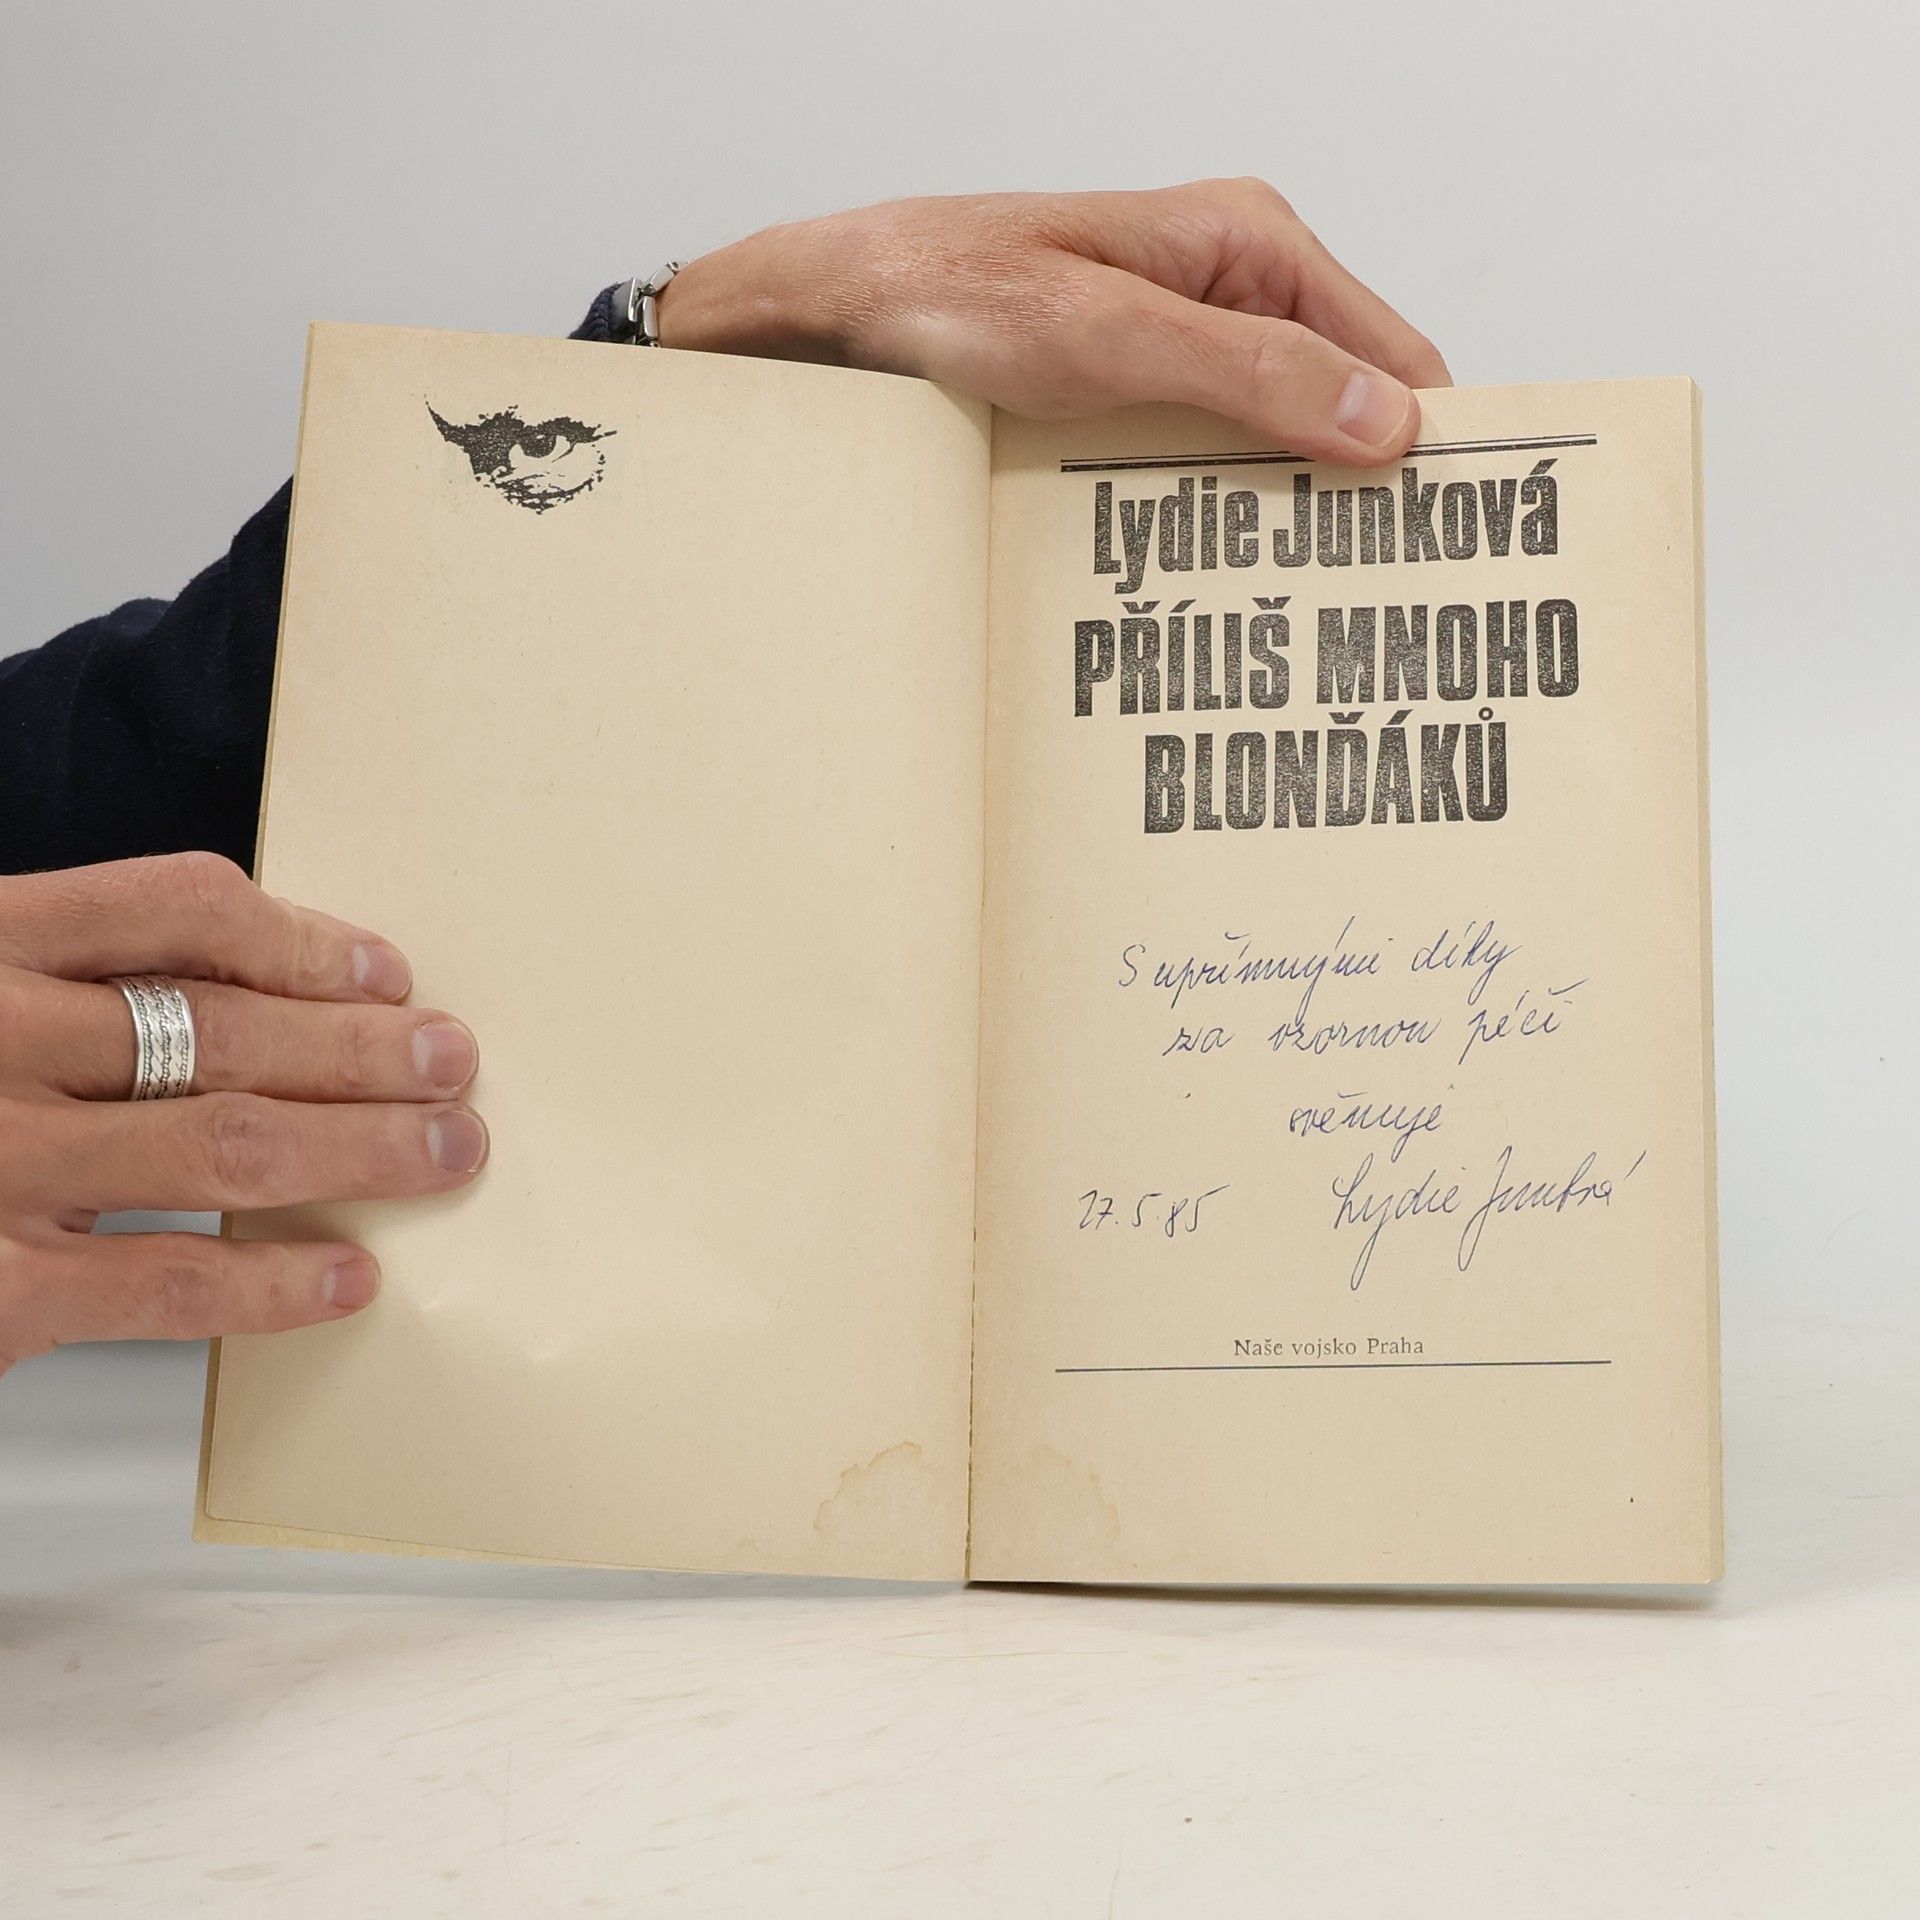 Lydie Junková
PŘÍLIŠ MNOHO
BLONĎÁKŮ
S upřímnými díky
za vzornou péči
věnuje
27. 5. 85 Lydie Junková
Naše vojsko Praha